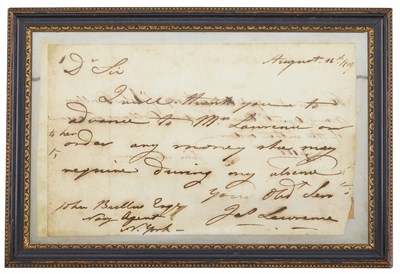 August 16th
Dr Sir
I will thank you to
advance to Mrs Lawrence or
her order any money she may
require during my absence
Your Obt Ser
Jas Lawrence
John Bullus Esqr
Navy Agent
N. York